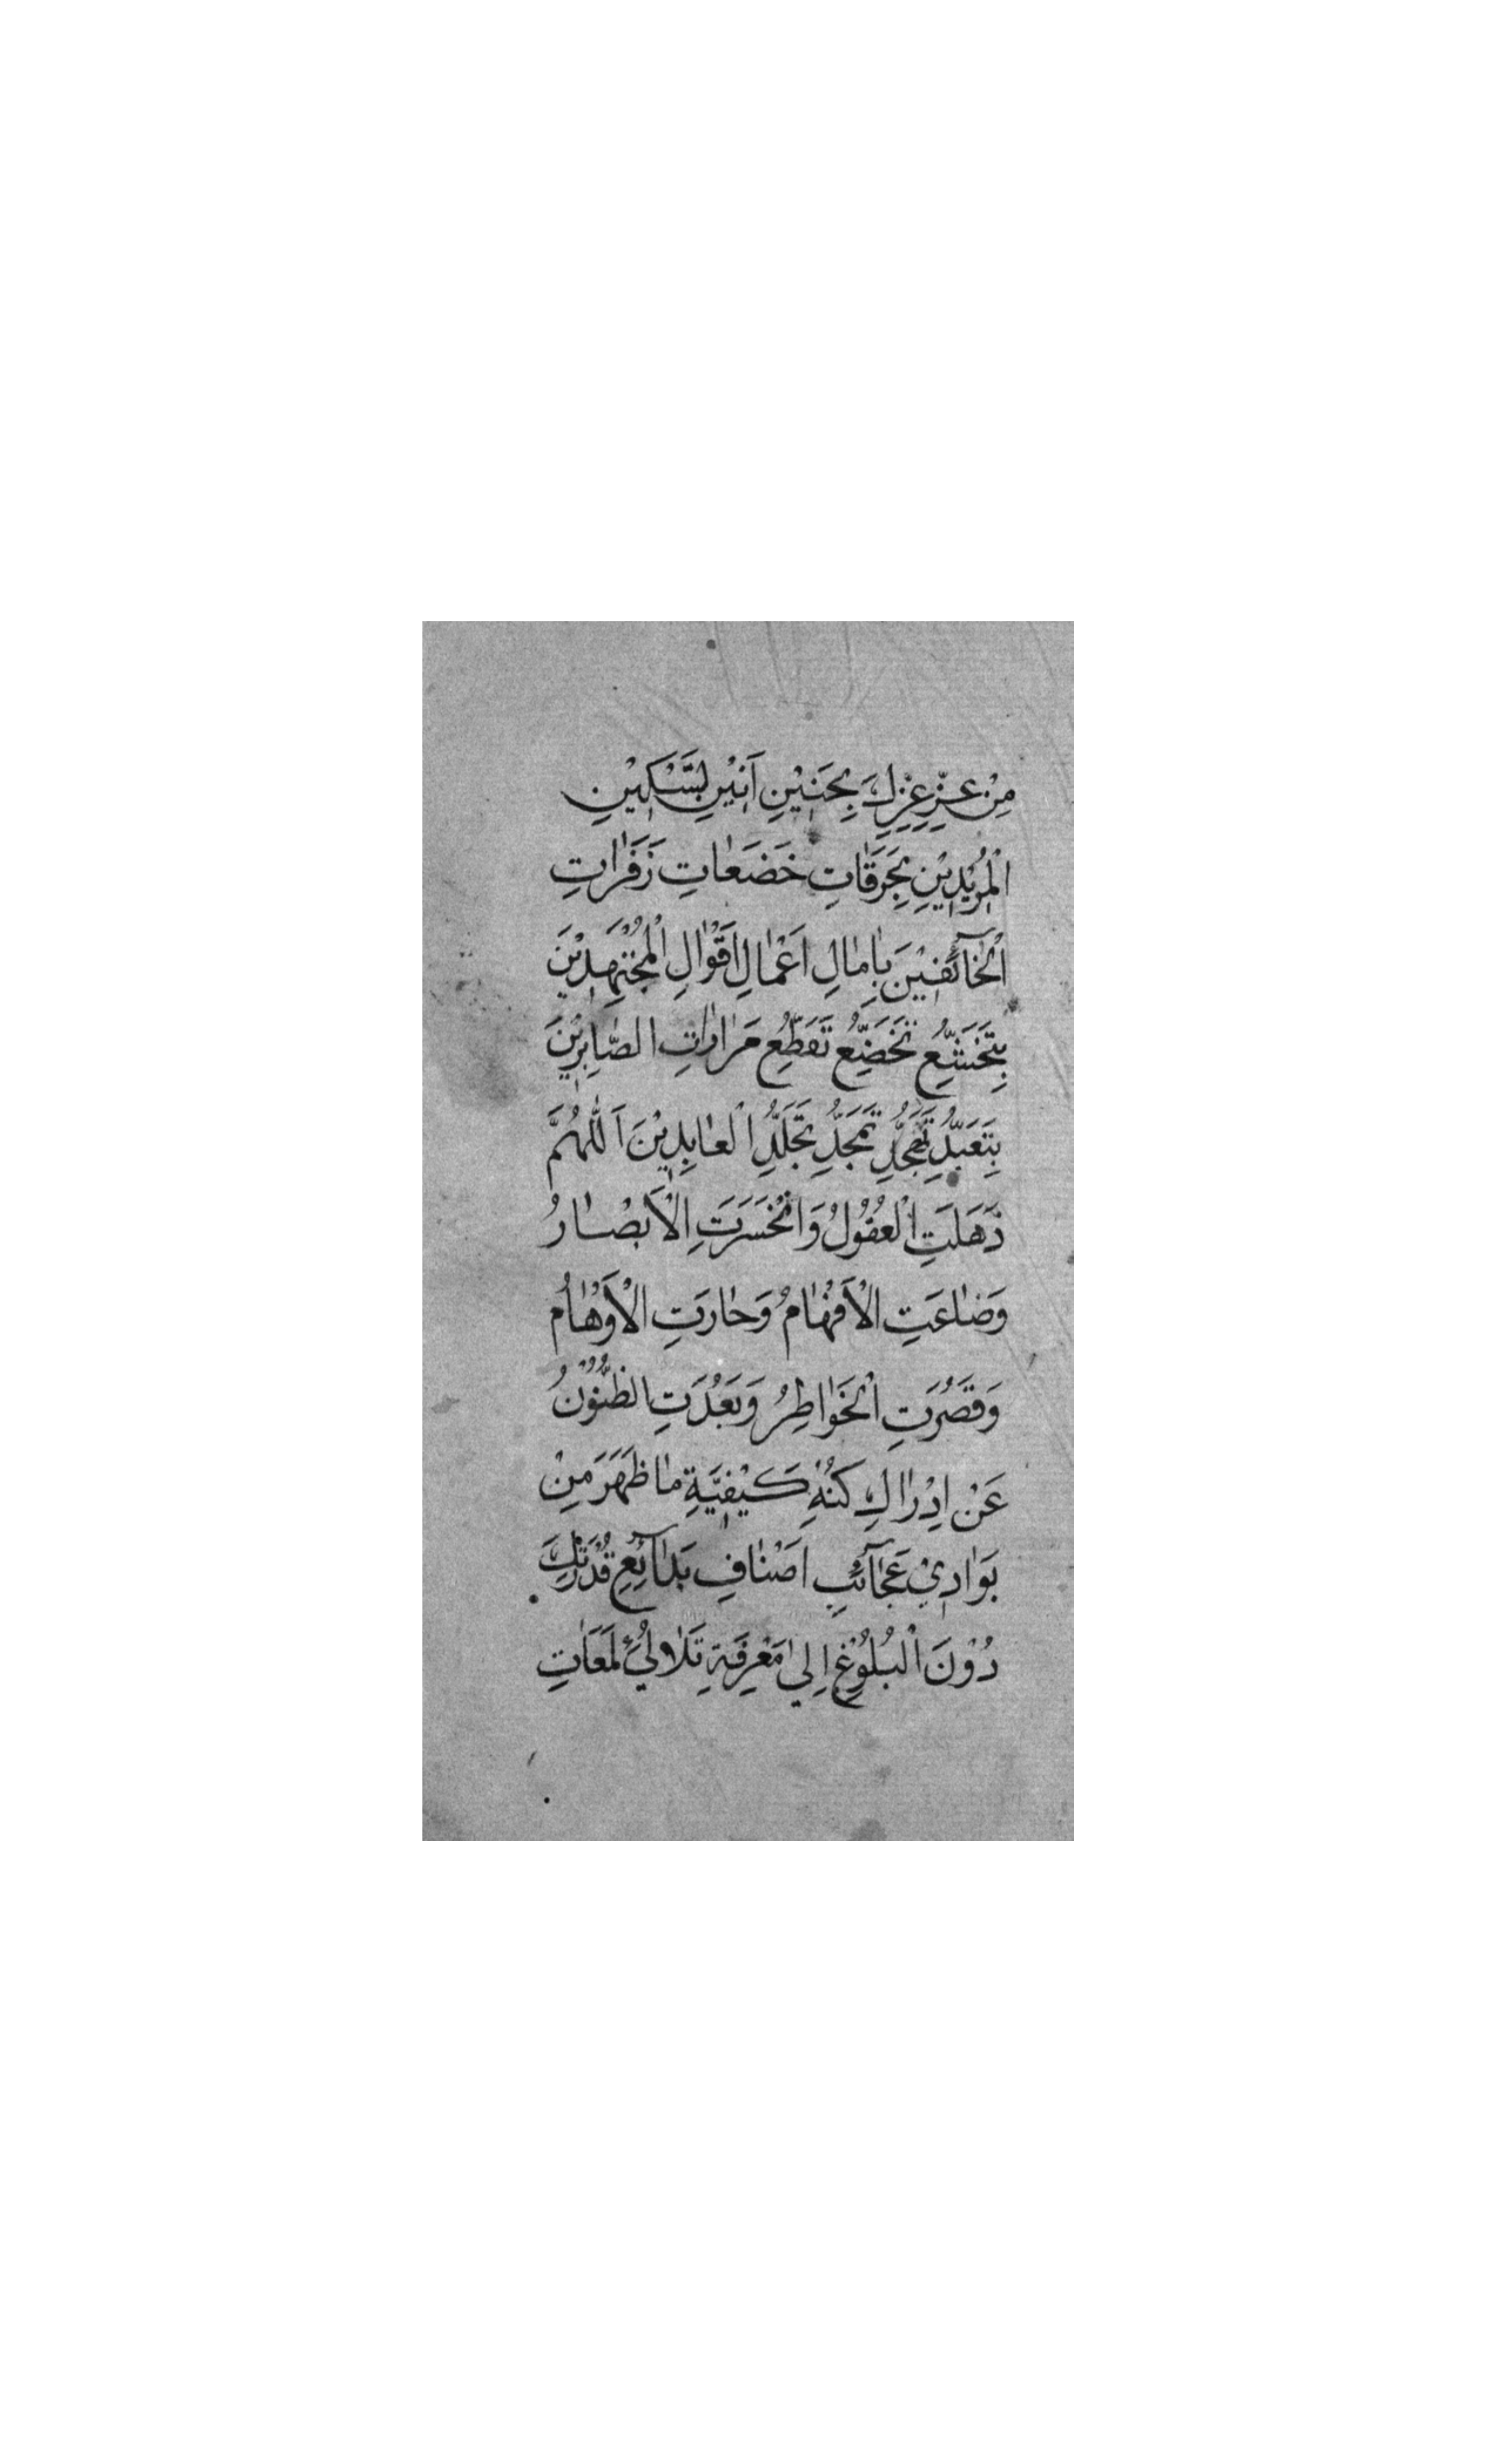 مِنْ عِزِّ عِزِّكَ بِحَنِيْنِ اَنِيْنِ تَسْكِيْنِ
الْمُرِيْدِيْنَ بِحَرَقَاتِ خَضَعَاتِ زَفَرَاتِ
الْخَآئِفِيْنَ بِاٰمَالِ اَعْمَالِ اَقْوَالِ الْمُجْتَهِدِيْنَ
بِتَخَشُّعِ تَخَضُّعِ تَقَطُّعِ مَرَارَاتِ الصَّابِرِيْنَ
بِتَعَبُّدِ تَهَجُّدِ تَمَجُّدِ تَجَلُّدِ الْعَابِدِيْنَ اَللّٰهُمَّ
ذَهَلَتِ الْعُقُوْلُ وَانْحَسَرَتِ الْاَبْصَارُ
وَضَاعَتِ الْاَفْهَامُ وَحَارَتِ الْاَوْهَامُ
وَقَصُرَتِ الْخَوَاطِرُ وَبَعُدَتِ الظُّنُوْنُ
عَنْ اِدْرَاكِ كُنْهِ كَيْفِيَّةِ مَا ظَهَرَ مِنْ
بَوَادِيْ عَجَآئِبِ اَصْنَافِ بَدَآئِعِ قُدْرَتِكَ
دُوْنَ الْبُلُوْغِ اِلٰى مَعْرِفَةِ تَلَاْلُئِ لَمَعَاتِ